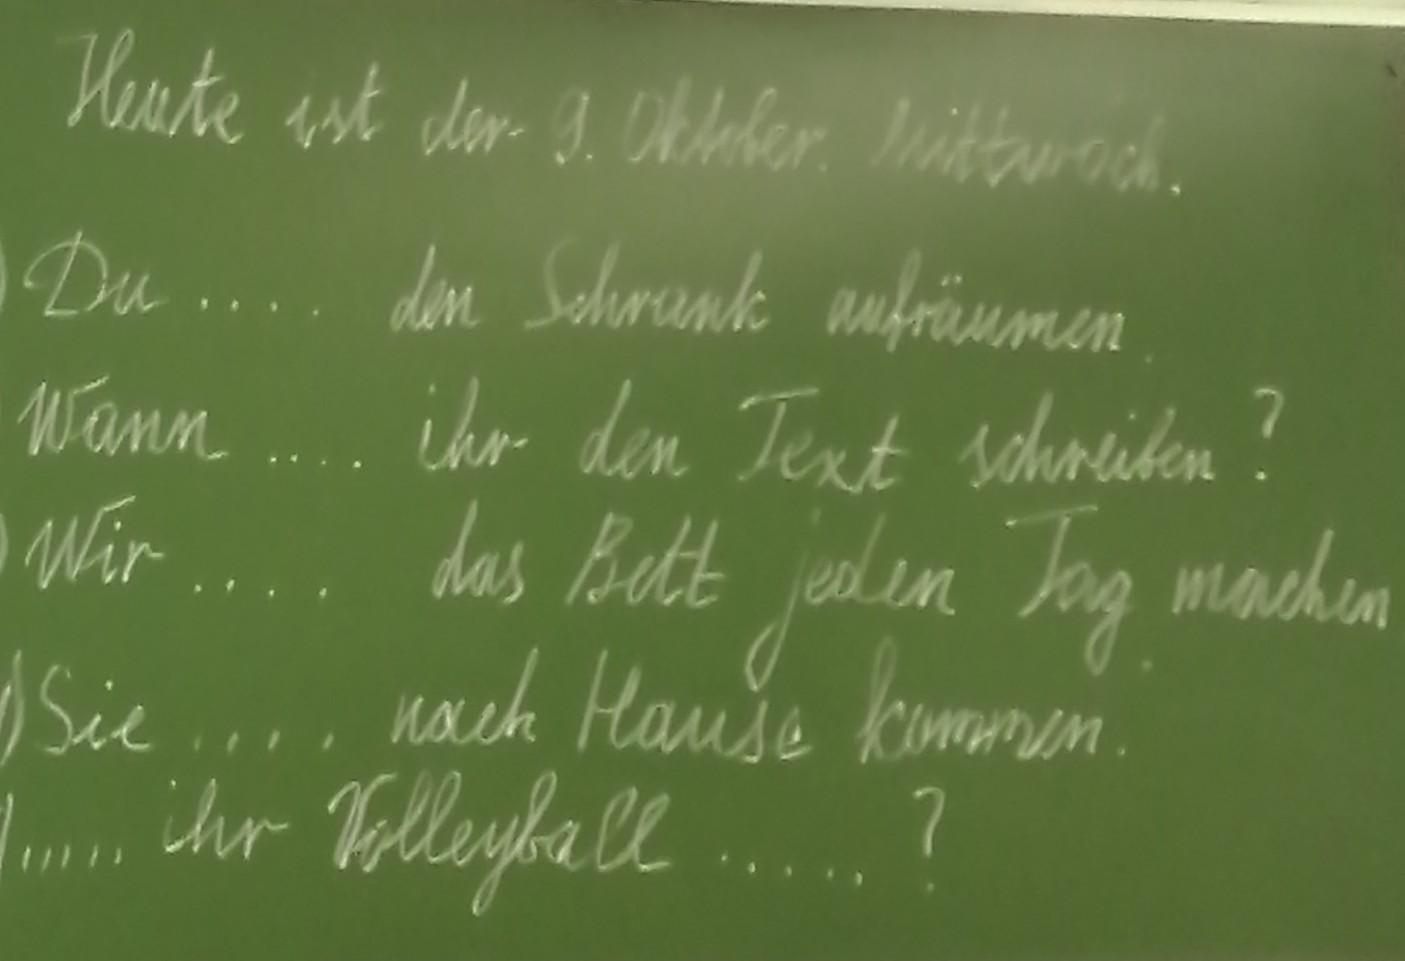 Heute ist der 9. Oktober. Mittwoch.
) Du .... den Schrank aufräumen.
Wann .... ihr den Text schreiben?
) Wir .... das Bett jeden Tag machen.
) Sie .... nach Hause kommen.
) ..... ihr Volleyball ..... ?